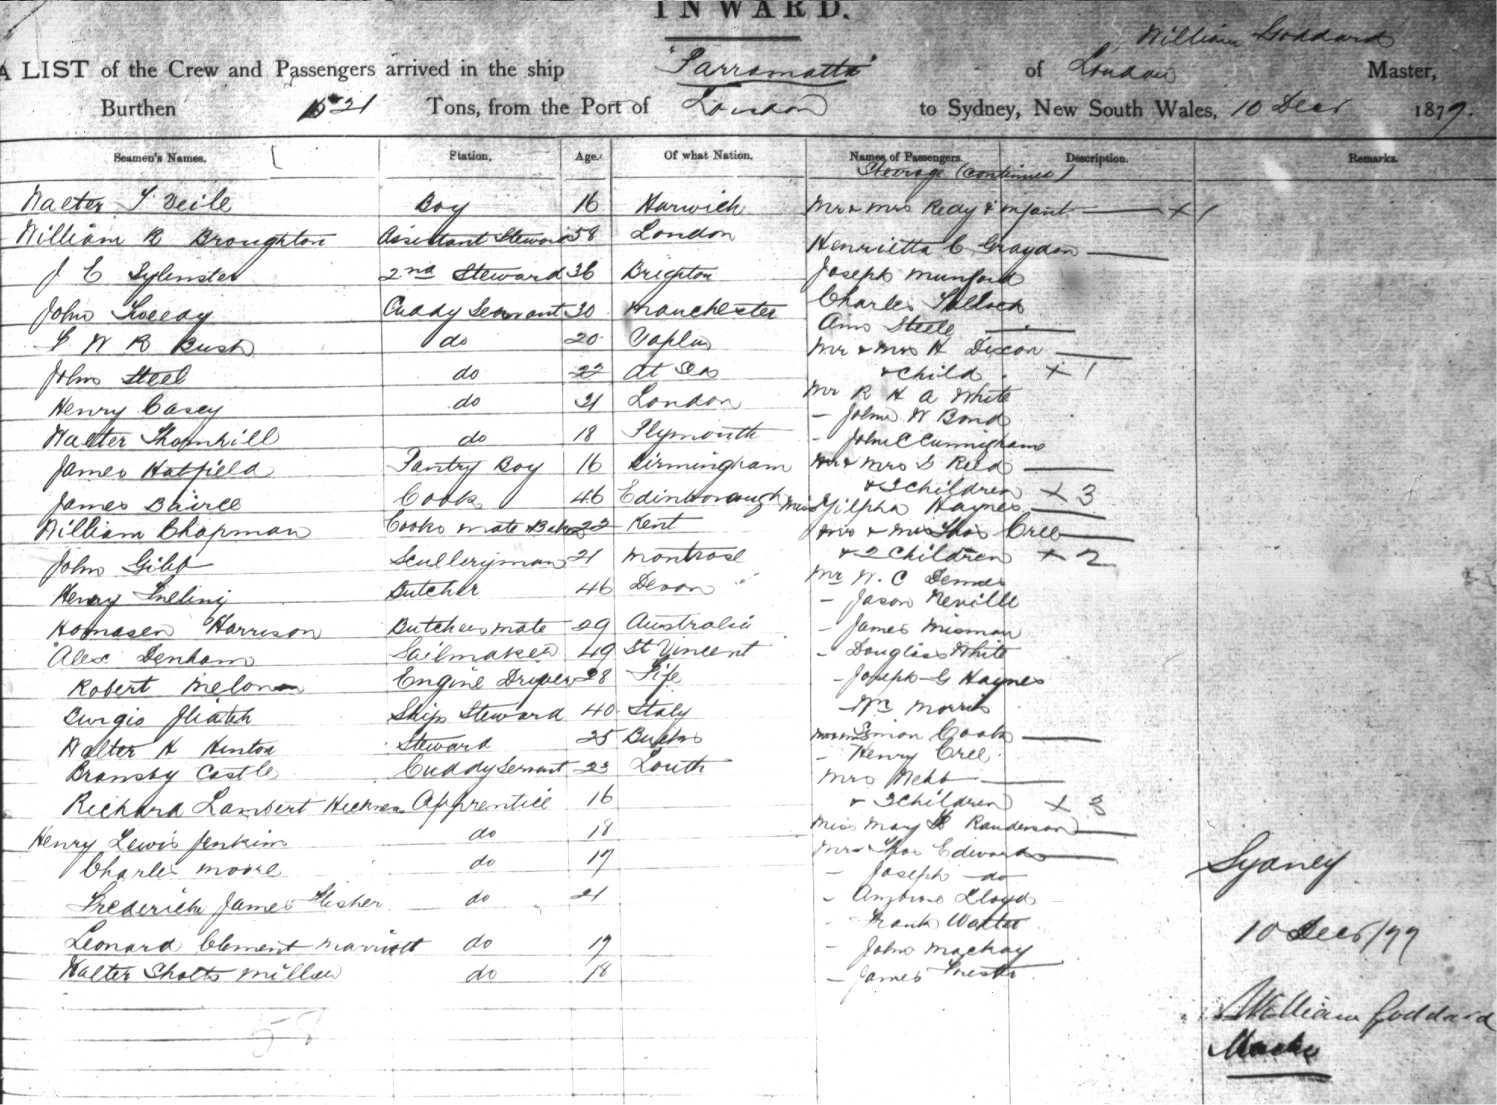 INWARD.
William Goddard
A LIST of the Crew and Passengers arrived in the ship "Parramatta" of London Master,
Burthen 1521 Tons, from the Port of London to Sydney, New South Wales, 10 Decr 1877.
Seamen's Names. Station. Age. Of what Nation. Names of Passengers. Description. Remarks.
Steerage (continued)
Walter T Veile Boy 16 Harwich Mr & Mrs Reay & infant + 1
William R Broughton Assistant Steward 58 London Henrietta C Graydon
J E Sylvester 2nd Steward 36 Brighton Joseph Munford
John Tweedy Cuddy Servant 30 Manchester Charles Pollock
Ann Steele
W R Bush do 20 Naples Mr & Mrs H Dixon
John Steel do 22 At Sea & child + 1
Henry Casey do 21 London Mr R H A White
- John W Bond
Walter Thornhill do 18 Plymouth - John C Cunningham
James Hatfield Pantry Boy 16 Birmingham Mr & Mrs S Reed
James Cook 46 Edinborough & 3 children + 3
Miss Zilpha Haynes
William Chapman Cooks mate & Baker 22 Kent Mr & Mrs Thos Cree
John Gibb Sculleryman 21 Montrose & 2 children + 2
Henry Butcher 46 Devon Mr W. C
- Jason Neville
Harrison Butchers mate 29 Australia - James
Alex Denham Sailmaker 49 St Vincent - Douglas White
Robert Engine Driver 28 Fife - Joseph G Haynes
Ships Steward 40 Italy - Wm Morris
Walter H Hinton Steward 25 Bucks Simon Cook
- Henry Cree
Bransby Castle Cuddy Servant 23 Louth Mrs Webb
Richard Lambert Apprentice 16 & 3 children + 3
Henry Lewis Jenkins do 18 Miss Mary Randerson
Charles Moore do 17 Thos Edwards
- Joseph do
Frederick James Fisher do 21 - Ambrose Lloyd
- Frank Walter
Leonard Clement Marriott do 17 - John Mackay
Walter Miller do 18 - James
58
Sydney
10 Decr/77
William Goddard
Master